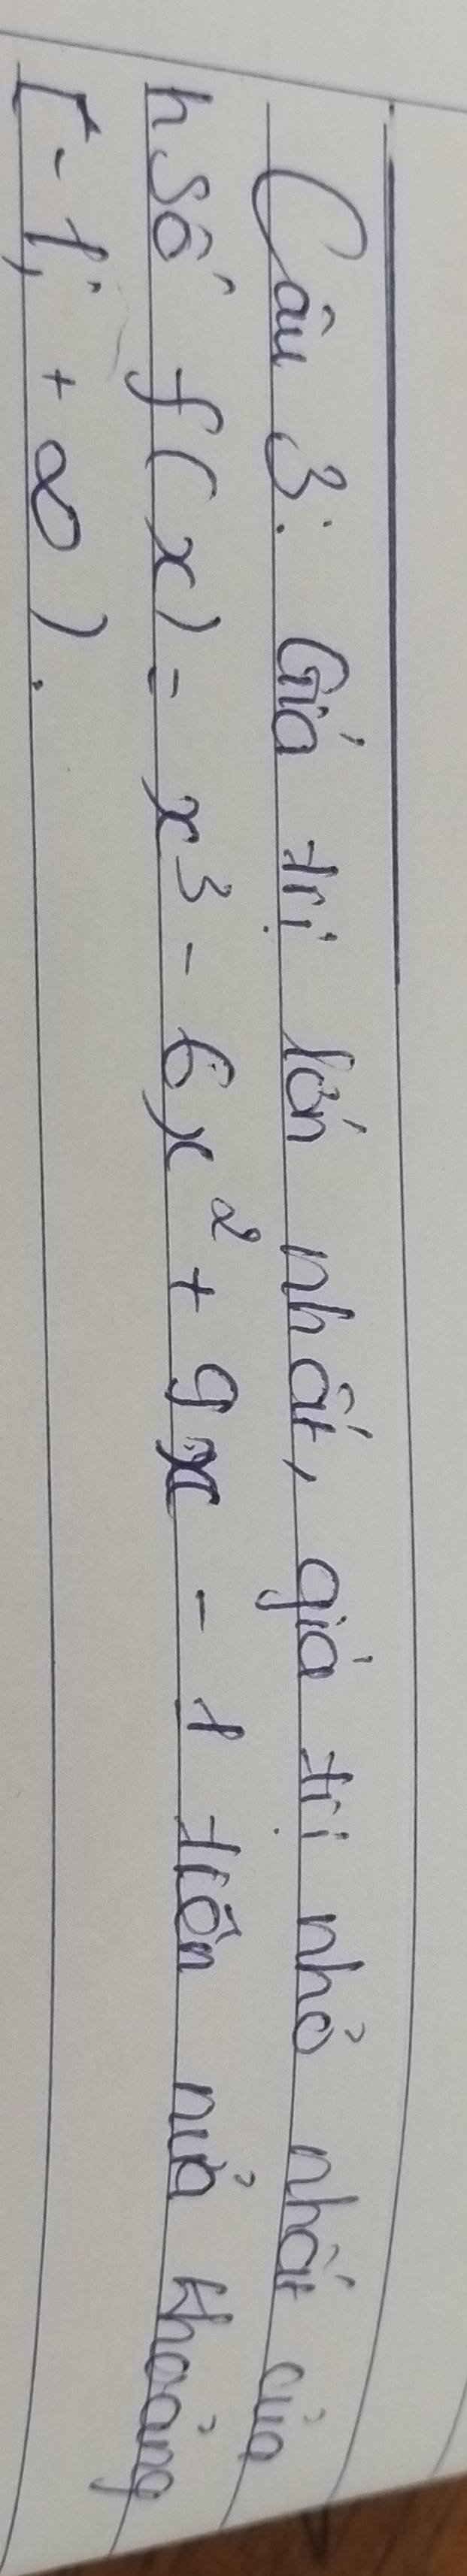 Câu 3: Giá trị lớn nhất, giá trị nhỏ nhất của
h số f(x) = x³ - 6x² + 9x - 1 trên nửa khoảng
[-1; +∞).